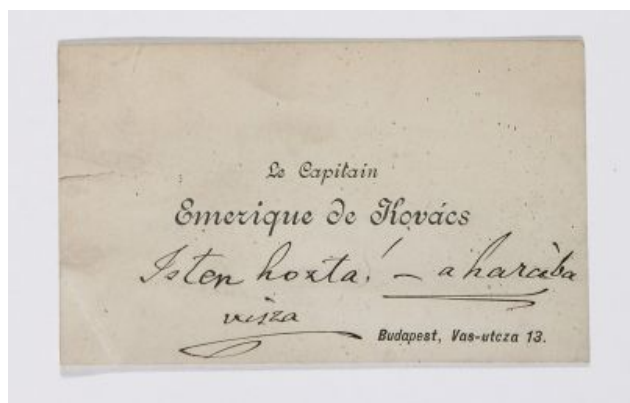 Le Capitain
Emerique de Kovács
Isten hozta! – a harcába
visza
Budapest, Vas-utcza 13.